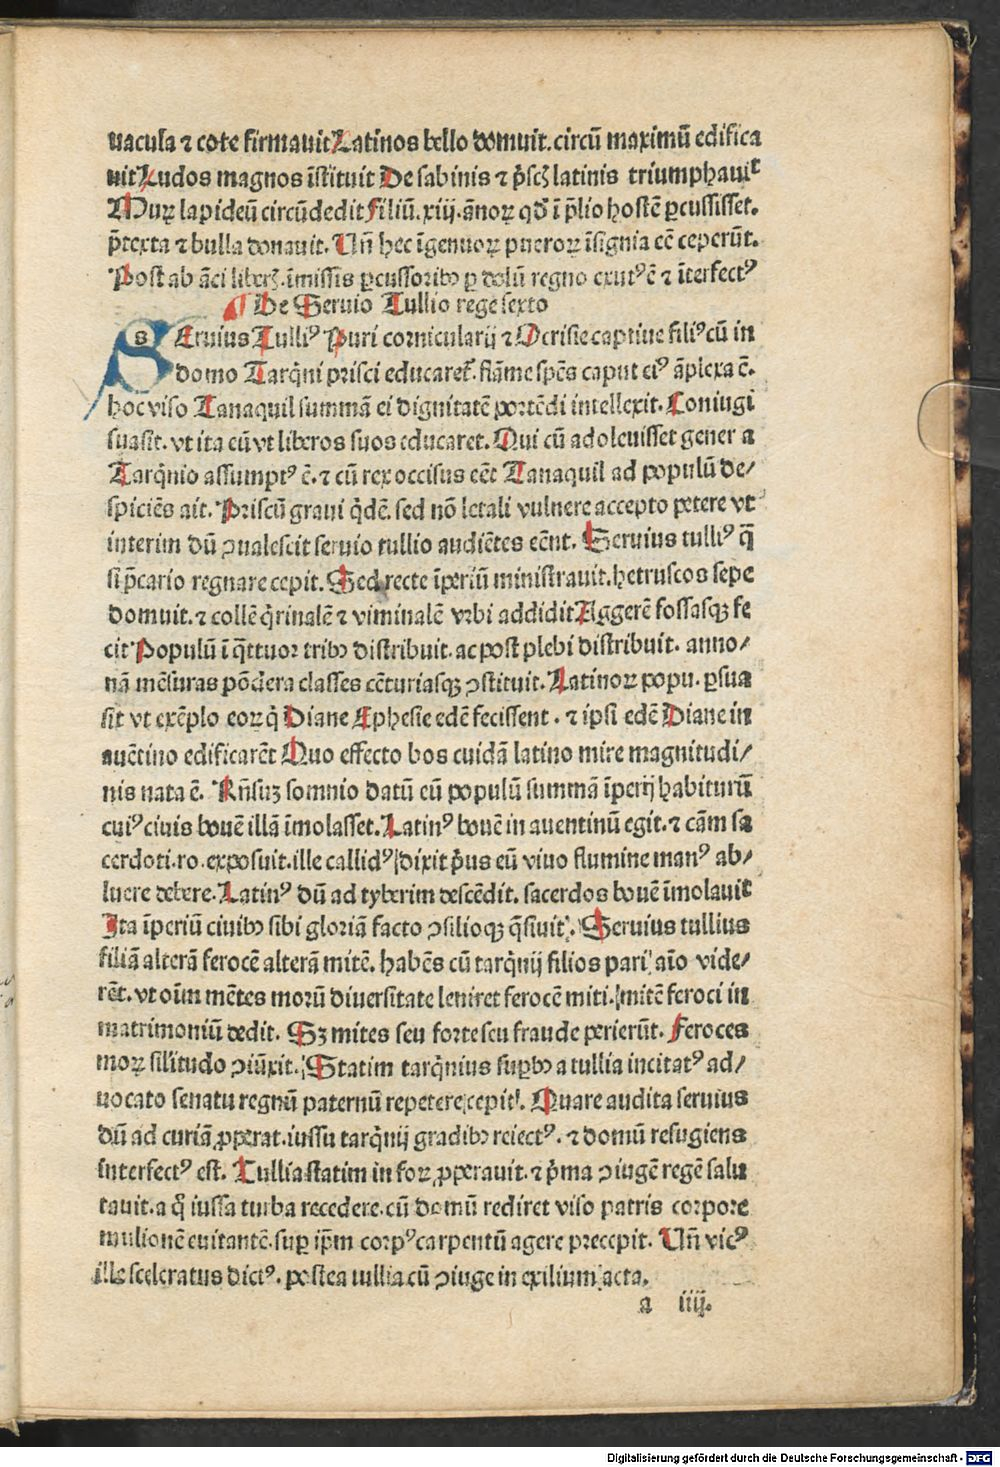 uacula ⁊ cote firmauit Latinos bello domuit. circū maximū edifica
uit Ludos magnos īstituit De sabinis ⁊ p̄scꝫ latinis triumphauit
Murꝝ lapideū circūdedit Filiū. xiij. ānoꝝ qd̄ ī p̄lio hostē ꝑcussisset.
p̄texta ⁊ bulla donauit. Un̄ hec īgenuoꝝ pueroꝝ īsignia eē ceperūt.
Post ab āci liberꝫ. īmissis ꝑcussoribꝫ ꝑ dolū regno exutꝰ ē ⁊ īterfectꝰ
¶ De Seruio Tullio rege sexto
SEruius Tulliꝰ Puri cornicularij ⁊ Ocrisie captiue filiꝰ cū in
domo Tarq̄ni prisci educaret̄. flāme spēs caput eiꝰ āplexa ē.
hoc viso Tanaquil summā ei dignitatē portēdi intellexit. Coniugi
suasit. vt ita eū vt liberos suos educaret. Qui cū adoleuisset gener a
Tarq̄nio assumptꝰ ē. ⁊ cū rex occisus eēt Tanaquil ad populū de/
spiciēs ait. Priscū graui q̄dē. sed nō letali vulnere accepto petere vt
interim dū ꝯualescit seruio tullio audiētes eēnt. Seruius tulliꝰ q̄
si p̄cario regnare cepit. Sed recte īperiū ministrauit. hetruscos sepe
domuit. ⁊ collē q̄rinalē ⁊ viminalē vrbi addidit Aggerē fossasqꝫ fe
cit Populū ī q̄ttuor tribꝫ distribuit. ac post plebi distribuit. anno/
nā mēsuras pōdera classes cēturiasqꝫ ꝯstituit. Latinoꝝ popu. ꝑsua
sit vt exēplo eoꝝ q̄ Diane Ephesie edē fecissent. ⁊ ipsi edē Diane in
auētino edificarēt Quo effecto bos cuidā latino mire magnitudi/
nis nata ē. Rn̄suꝫ somnio datū eū populū summā īperij habiturū
cuiꝰ ciuis bouē illā īmolasset. Latinꝰ bouē in auentinū egit. ⁊ cām sa
cerdoti. ro. exposuit. ille callidꝰ dixit p̄us eū viuo flumine manꝰ ab/
luere debere. Latinꝰ dū ad tyberim descēdit. sacerdos bouē īmolauit
Ita īperiū ciuibꝫ sibi gloriā facto ꝯsilioqꝫ q̄siuit. Seruius tullius
filiā alterā ferocē alterā mitē. habēs cū tarq̄nij filios pari aīo vide/
rēt. vt oīm mētes morū diuersitate leniret ferocē miti. mitē feroci in
matrimoniū dedit. Sꝫ mites seu forte seu fraude perierūt. Feroces
moꝝ silitudo ꝯiūxit. Statim tarq̄nius suꝑbꝰ a tullia incitatꝰ ad/
uocato senatu regnū paternū repetere cepit. Quare audita seruius
dū ad curiā ꝓperat. iussu tarq̄nij gradibꝫ reiectꝰ. ⁊ domū refugiens
interfectꝰ est. Tullia statim in foꝝ ꝓperauit. ⁊ p̄ma ꝯiugē regē salu
tauit. a q̄ iussa turba recedere. cū domū rediret viso patris corpore
mulionē euitantē. suꝑ ip̄m corpꝰ carpentū agere precepit. Un̄ vicꝰ
ille sceleratus dictꝰ. postea tullia cū ꝯiuge in exilium acta.
a iiij.
Digitalisierung gefördert durch die Deutsche Forschungsgemeinschaft - DFG